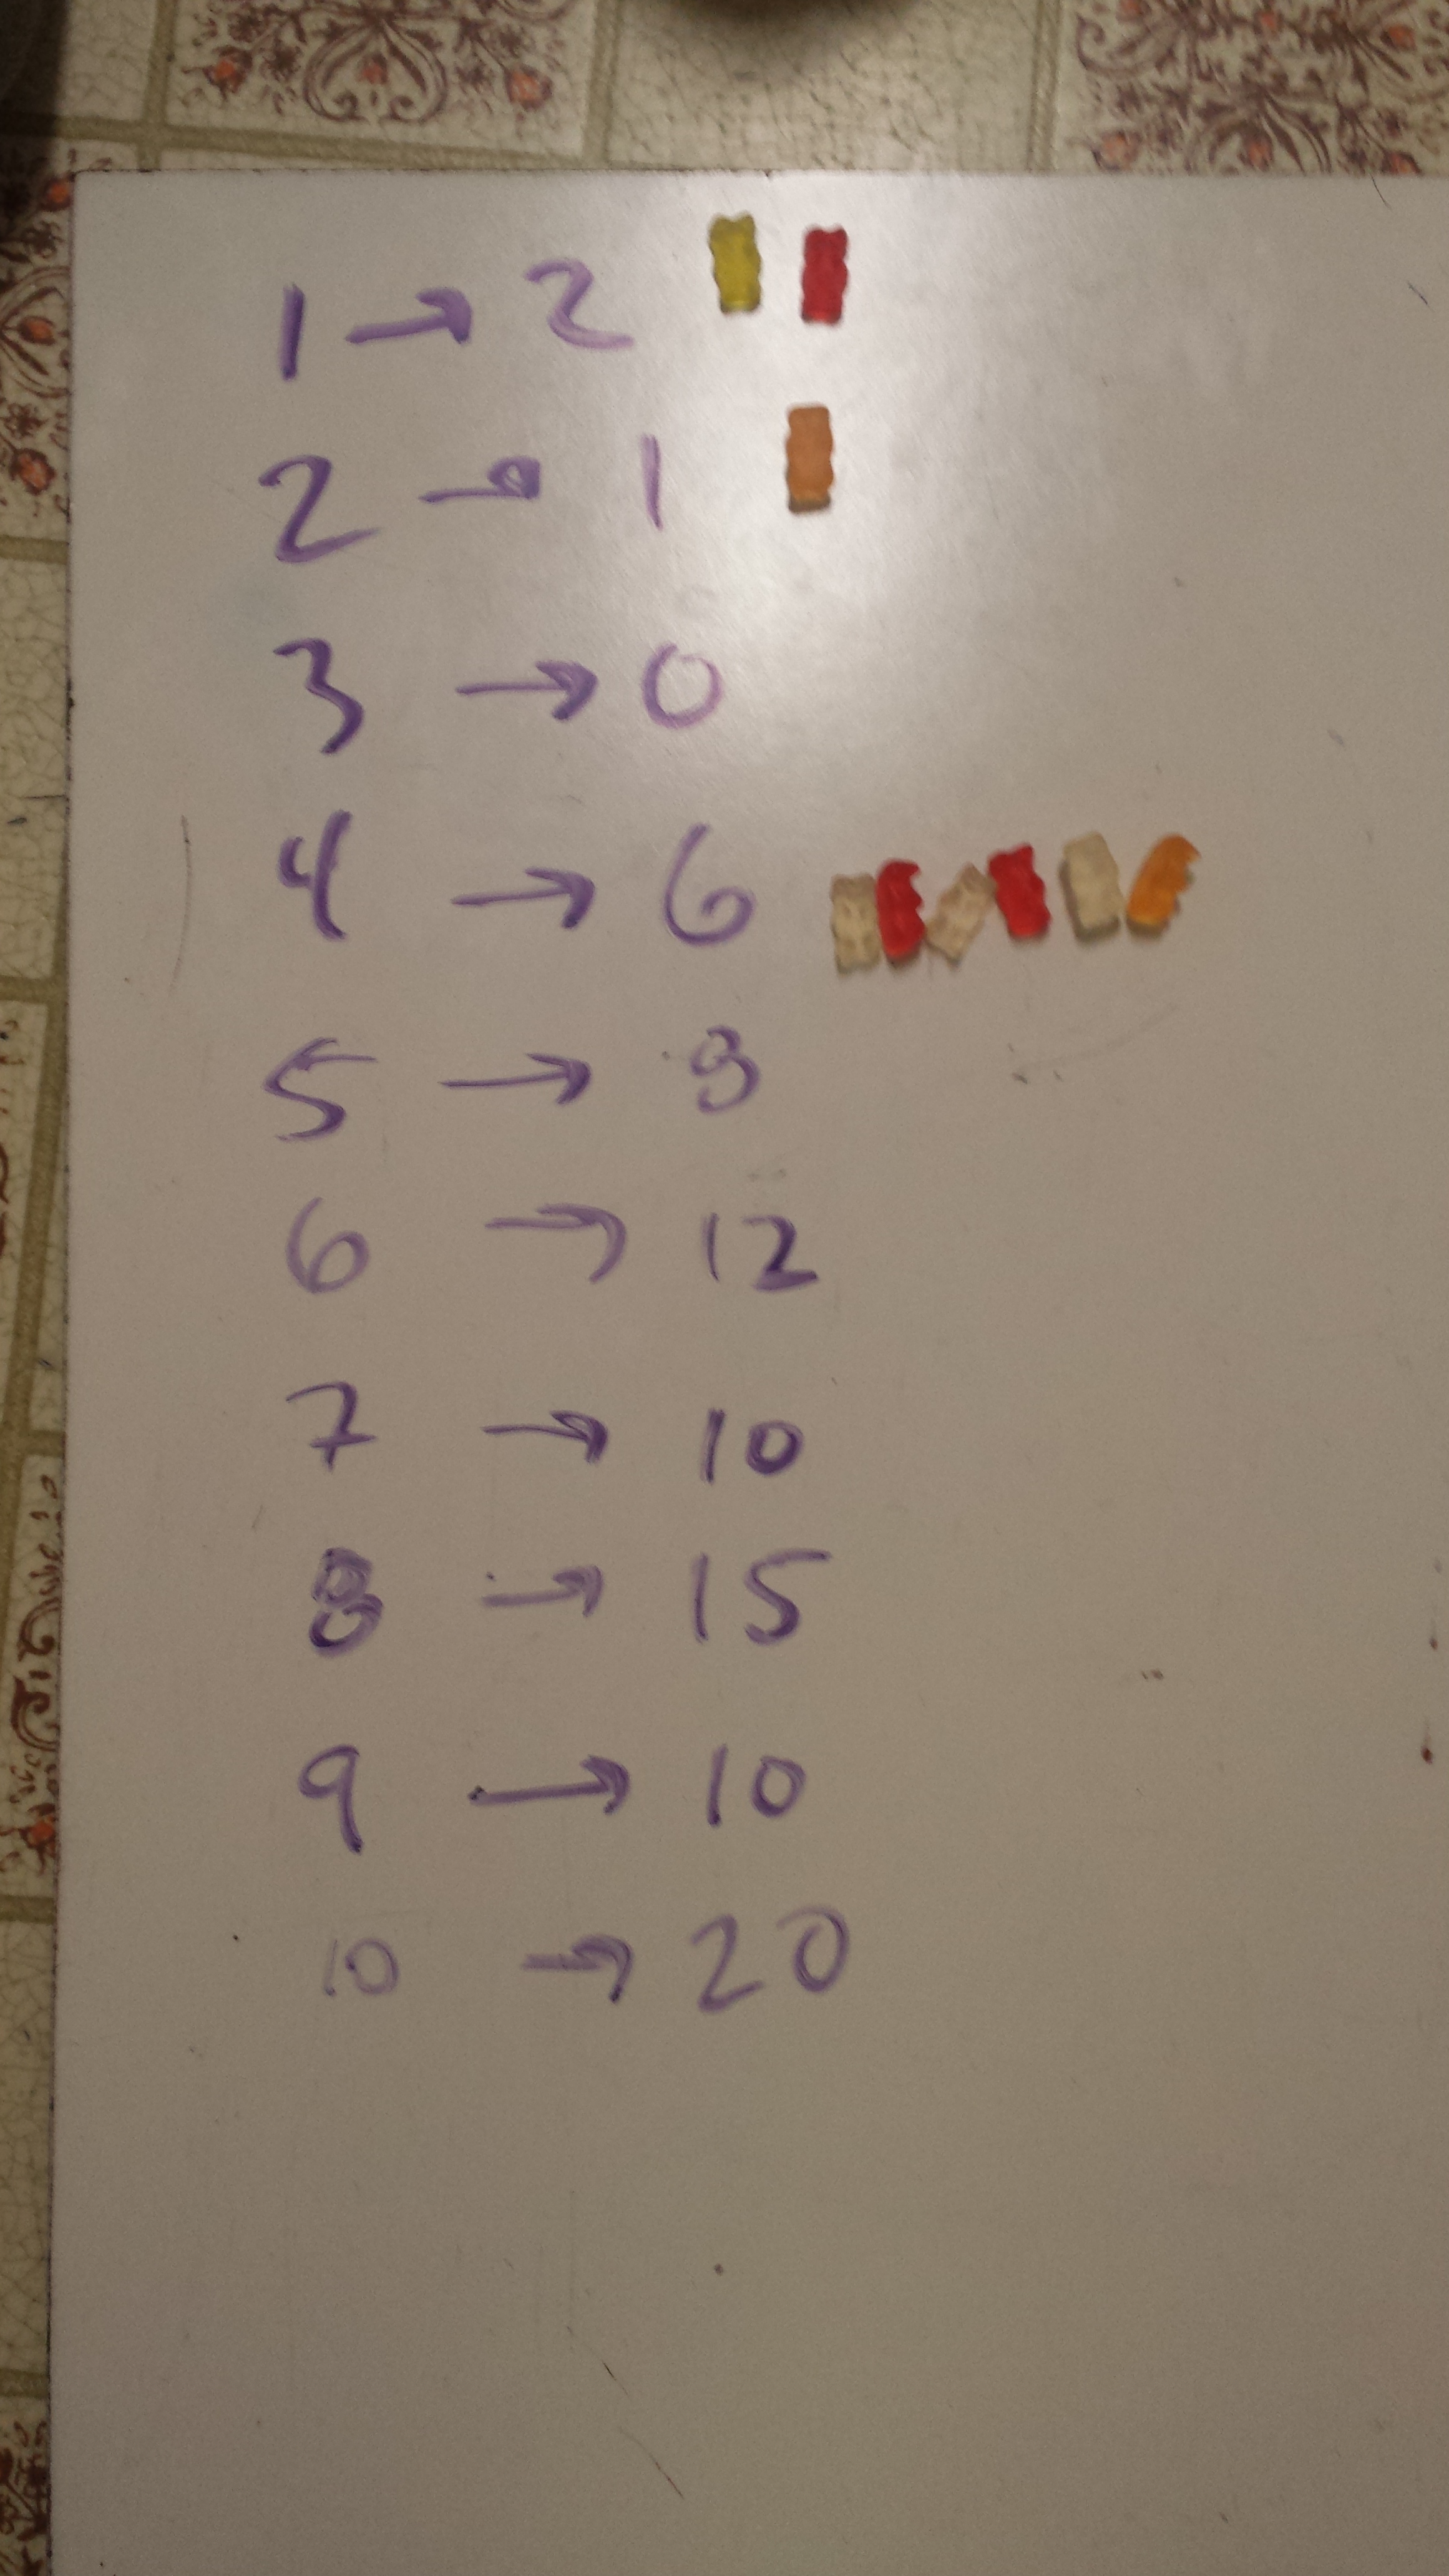 1 → 2
2 → 1
3 → 0
4 → 6
5 →
6 → 12
7 → 10
8 → 15
9 → 10
10 → 20